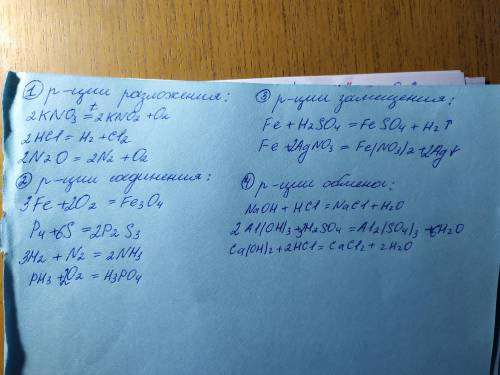 ① р-ции разложения:
2KNO3 =t 2KNO2 + O2
2HCl = H2 + Cl2
2N2O = 2N2 + O2
② р-ции соединения:
3Fe + 2O2 = Fe3O4
P4 + 6S = 2P2S3
3H2 + N2 = 2NH3
PH3 + 2O2 = H3PO4
③ р-ции замещения:
Fe + H2SO4 = FeSO4 + H2↑
Fe + 2AgNO3 = Fe(NO3)2 + 2Ag↓
④ р-ции обмена:
NaOH + HCl = NaCl + H2O
2Al(OH)3 + 3H2SO4 = Al2(SO4)3 + 6H2O
Ca(OH)2 + 2HCl = CaCl2 + 2H2O